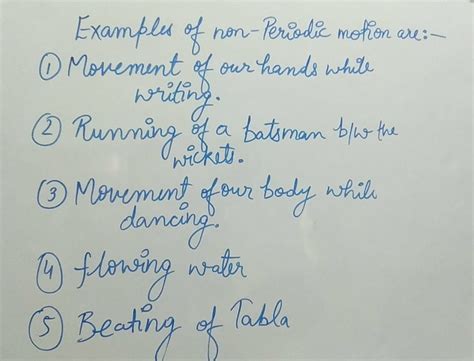 Examples of non-Periodic motion are:-
① Movement of our hands while
writing.
② Running of a batsman b/w the
wickets.
③ Movement of our body while
dancing.
④ flowing water
⑤ Beating of Tabla